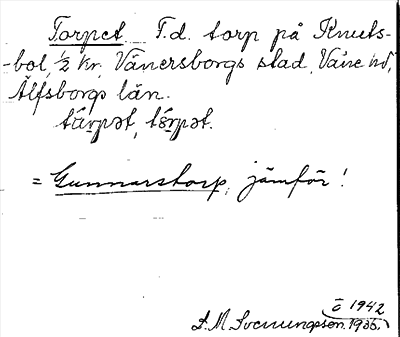 Torpet F.d. torp på Knuts-
-bol, 1/2 kr, Vänersborgs stad, Väne hd,
Älfsborgs län.
tårpət, tɛ́rpət.
= Gunnarstorp, jämför!
o 1942
S. M. Svenungsson. 1935.